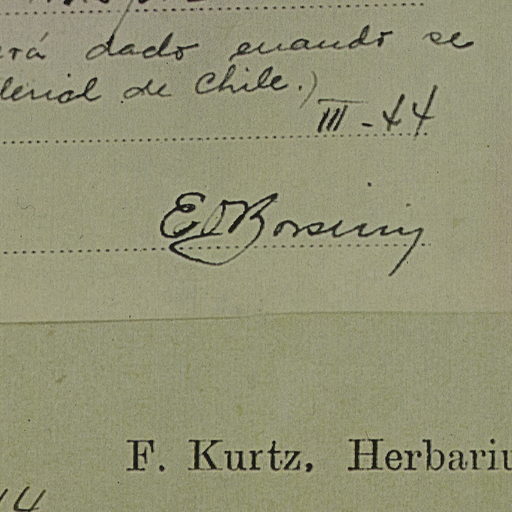 erá dado cuando se
terial de Chile.)
III-44
EOBorsini
F. Kurtz. Herbariu